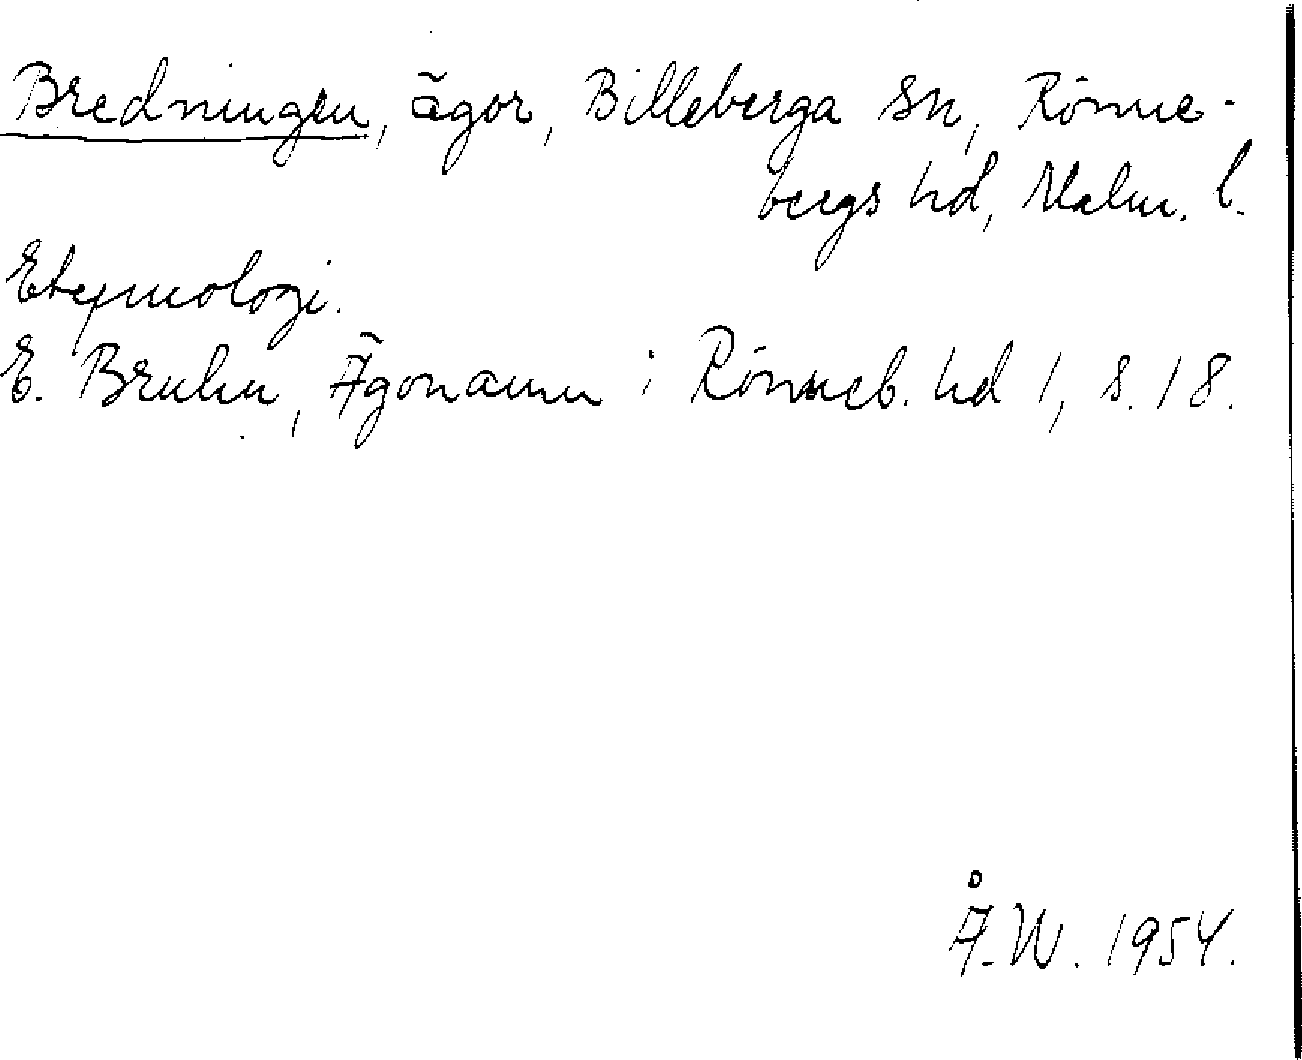 Bredningen, ägor, Billeberga sn, Rönne-
bergs hd, Malm. l.
Etymologi.
E. Bruhn, Ägonamn i Rönneb. hd 1, s. 18.
Å. W. 1954.